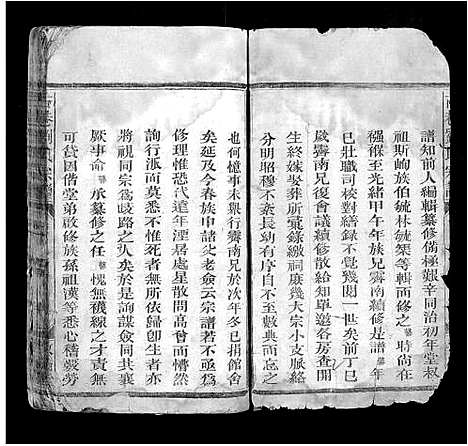 譜知前人編輯纂修備極艱辛同治初年堂叔
祖斯峋族伯毓林毓榘等輯而修之時尚在
襁褓至光緒甲午年族兄霽南續修譜牒年
已壯職司校對繕錄不覺幾閱一世矣前丁巳
歲霽南兄復會議續修散給知單邀各房查開
生終嫁娶葬所彙錄繳祠庶幾大宗小支脈絡
分明昭穆不紊長幼有序自不至數典而忘之
也何憶事未舉行霽南兄於次年冬已捐館舍
矣延及於今春族中諸父老僉云宗譜若不亟為
修理惟恐代遠年湮居處星散問高曾而莫知
詢行派而莫悉不惟死者無所依歸卽生者亦
將視同宗為岐路之人矣於是詢謀僉同共襄
厥事命承纂修之任愧無襪線之才責無
可貸因偕堂弟啟修族孫祖漢等悉心稽覈勞